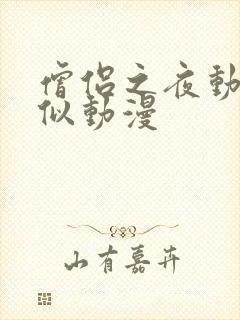 僧侶之夜動
似動漫
山有嘉卉